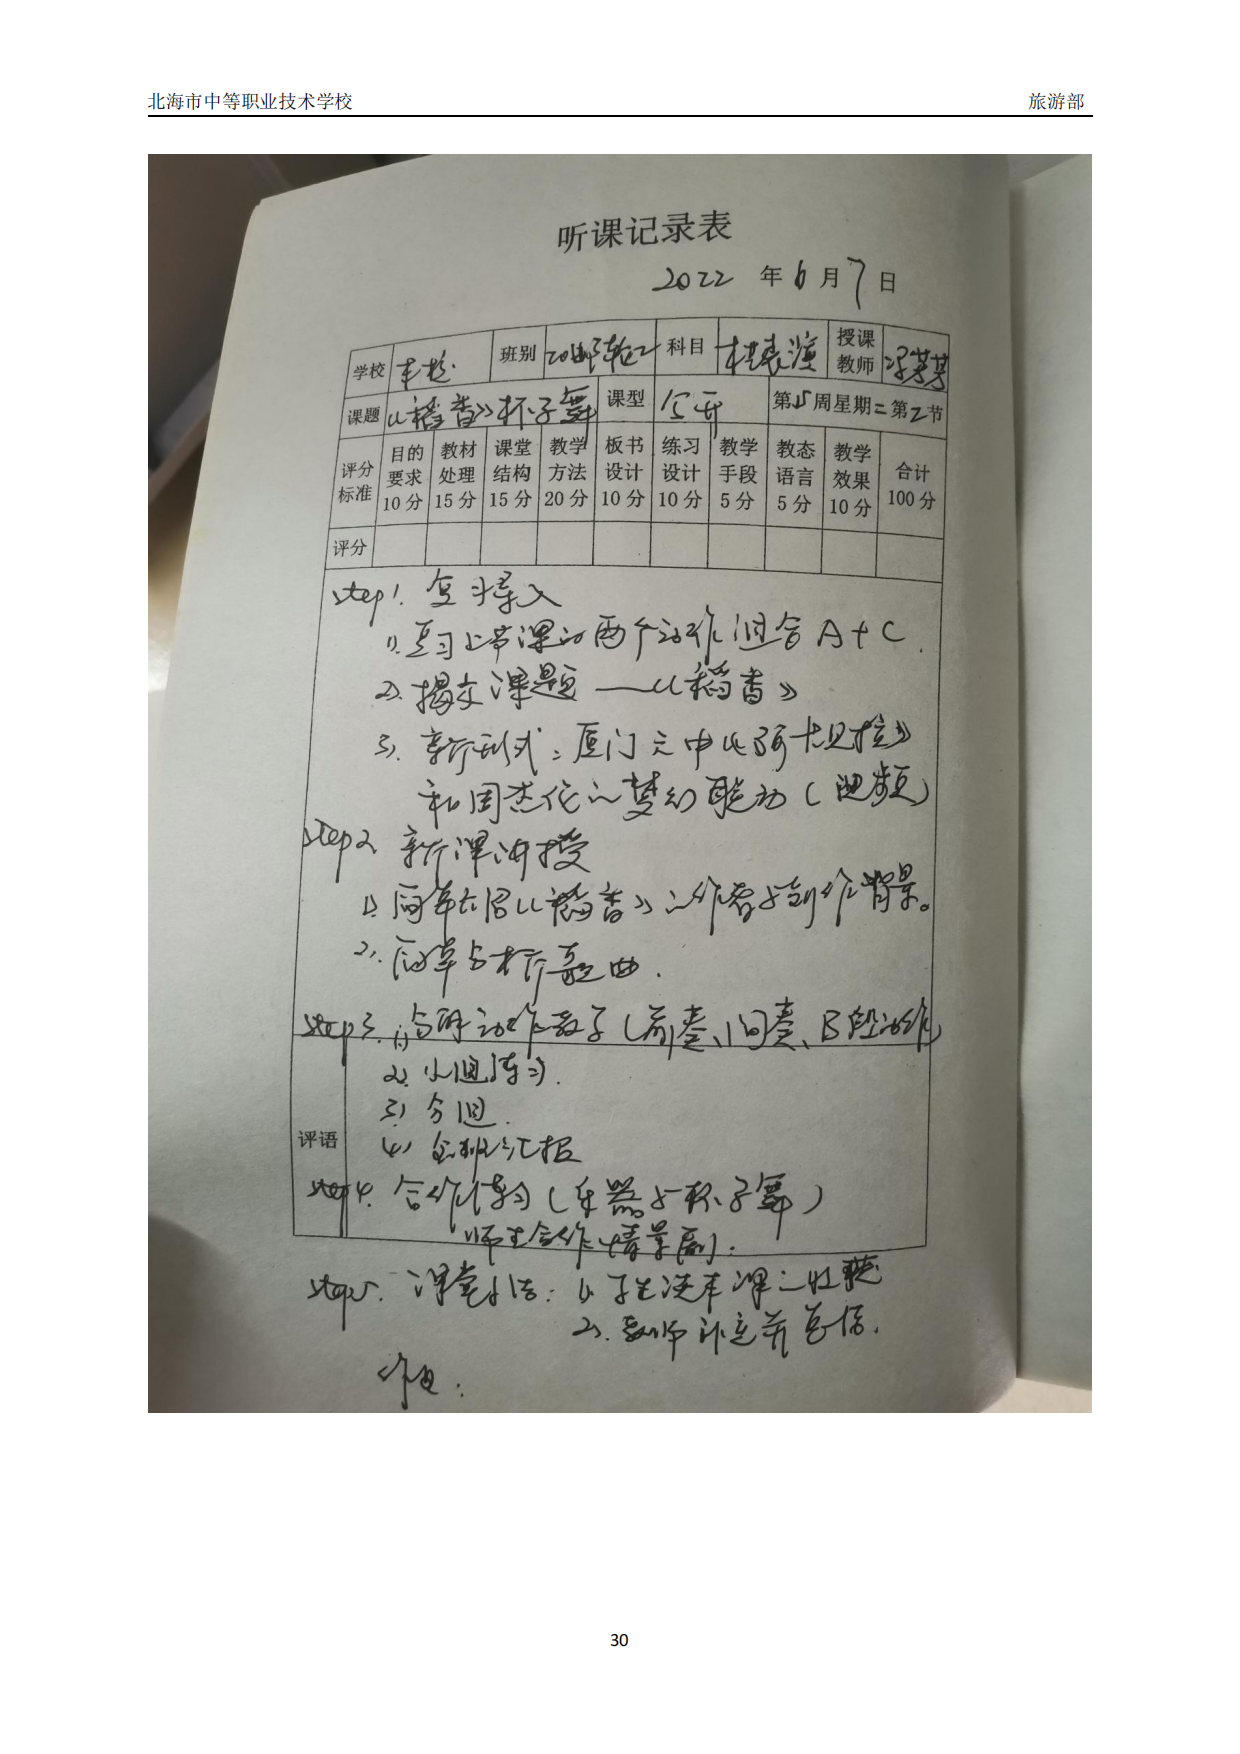 北海市中等职业技术学校 旅游部
听课记录表
2022 年 6 月 7 日
学校 本校 班别 20邮轮2 科目 表演 授课教师 芳芳
课题 《稻香》杯子舞 课型 公开 第15周星期二第2节
评分标准 目的要求10分 教材处理15分 课堂结构15分 教学方法20分 板书设计10分 练习设计10分 教学手段5分 教态语言5分 教学效果10分 合计100分
评分
step1. 复习导入
1). 复习上节课的两个动作组合 A+C.
2). 揭示课题——《稻香》
3). 新形式：厦门六中《阿卡贝拉》
和周杰伦的梦幻联动（视频）
step2. 新课讲授
1). 简单介绍《稻香》的作者与创作背景。
2). 简单分析歌曲.
step3. 1) 分解动作教学（前奏、间奏、B段动作
2). 小组练习.
3) 分组.
评语
4) 全班汇报
step4. 合作练习（乐器与杯子舞）
师生合作情景剧.
step5. 课堂小结: 1). 学生谈本课之收获
2). 教师 并总结.
作业:
30